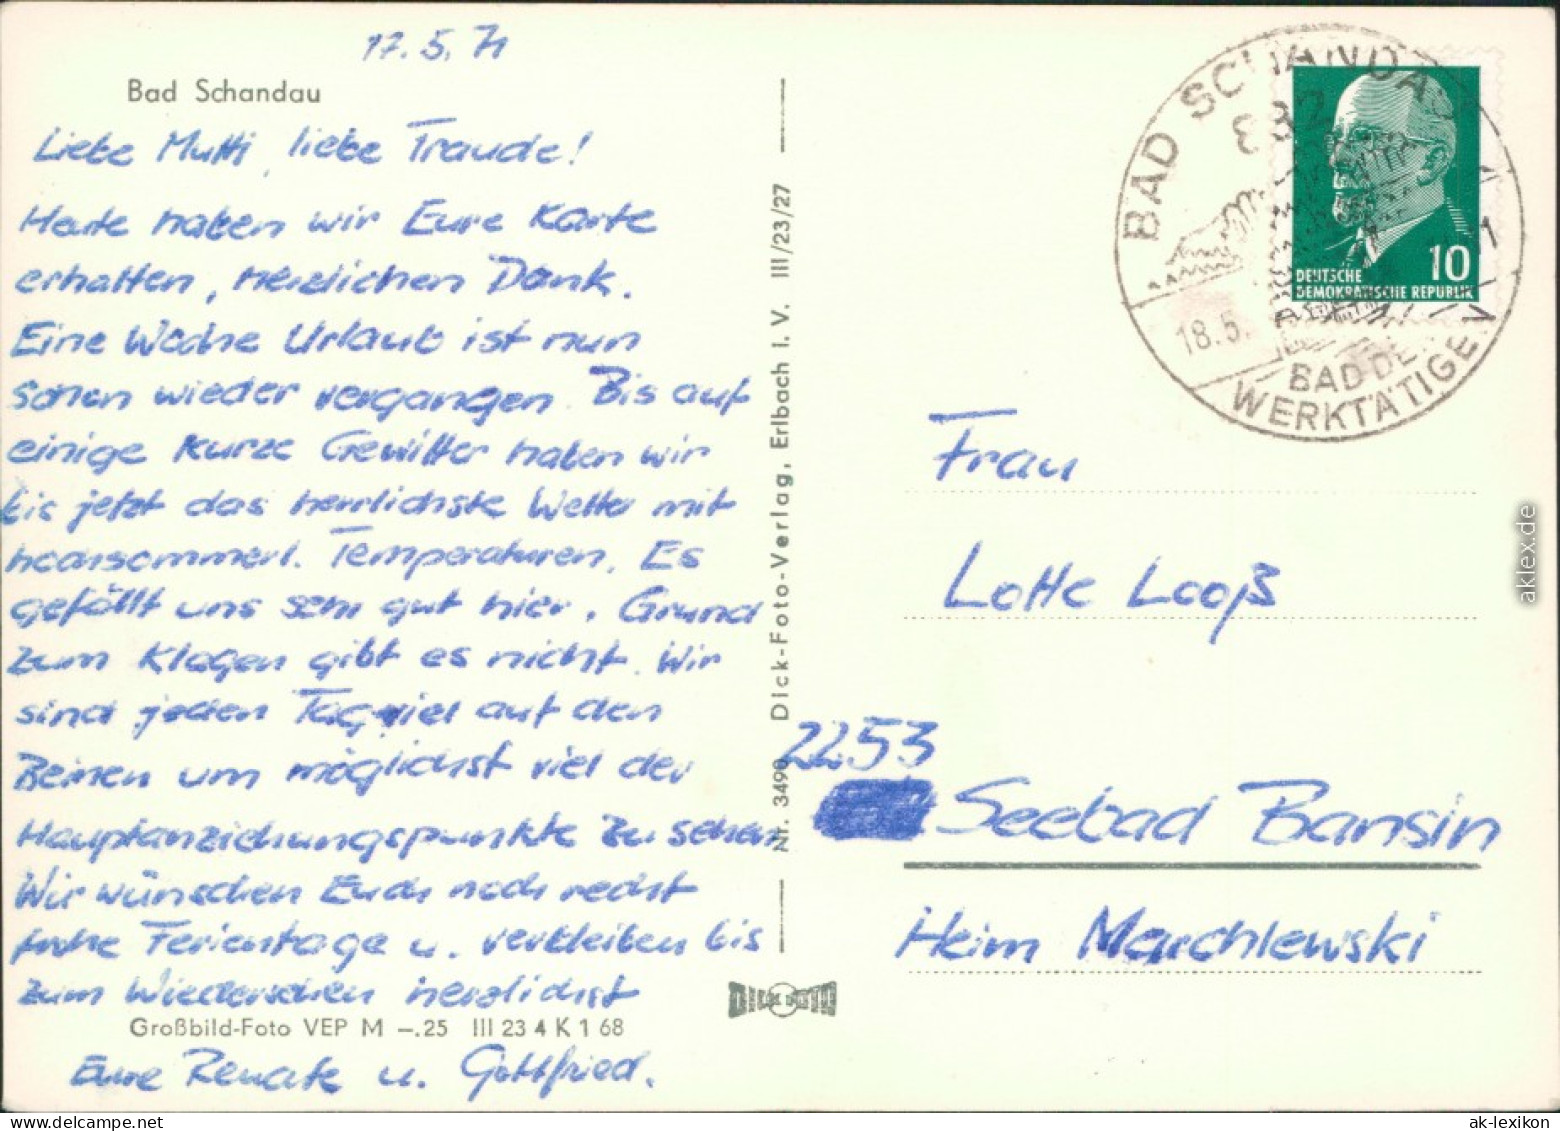 17.5.71
Bad Schandau
Liebe Mutti, liebe Traude!
Heute haben wir Eure Karte
erhalten, herzlichen Dank.
Eine Woche Urlaub ist nun
schon wieder vergangen. Bis auf
einige kurze Gewitter haben wir
bis jetzt das herrlichste Wetter mit
hochsommerl. Temperaturen. Es
gefällt uns sehr gut hier. Grund
zum Klagen gibt es nicht. Wir
sind jeden Tag viel auf den
Beinen um möglichst viel der
Hauptanziehungspunkte zu sehen
Wir wünschen Euch noch recht
frohe Ferientage u. verbleiben bis
zum Wiedersehen herzlichst
Großbild-Foto VEP M –.25 III 23 4 K 1 68
Eure Renate u. Gottfried.
Nr. 3490 Dick-Foto-Verlag, Erlbach i. V. III/23/27
DICK FOTO
BAD SCHANDAU
832
18.5.
BAD DER
WERKTÄTIGEN
10
DEUTSCHE
DEMOKRATISCHE REPUBLIK
Frau
Lotte Looß
2253
Seebad Bansin
Heim Marchlewski
aklex.de
ak-lexikon